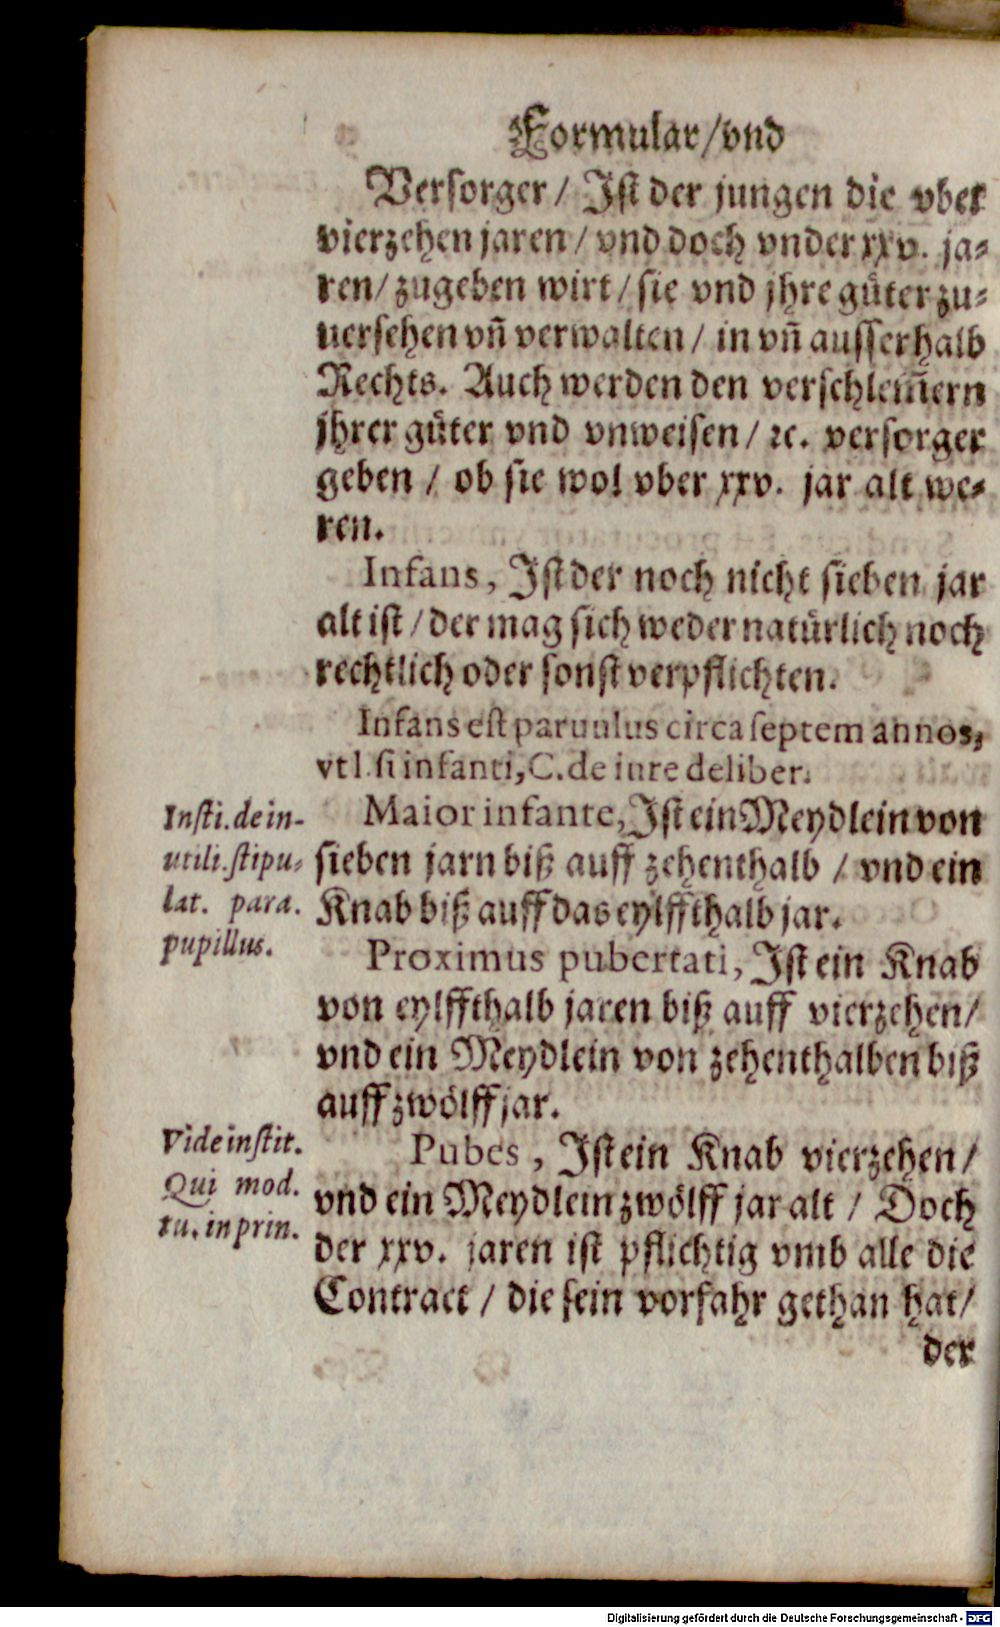 Formular/vnd
Versorger / Ist der jungen die vber
vierzehen jaren / vnd doch vnder xxv. ja-
ren/ zugeben wirt / sie vnd jhre güter zu-
uersehen vñ verwalten / in vñ ausserhalb
Rechts. Auch werden den verschlem̃ern
jhrer güter vnd vnweisen / ꝛc. versorger
geben / ob sie wol vber xxv. jar alt we-
ren.
Infans, Ist der noch nicht sieben jar
alt ist / der mag sich weder natürlich noch
rechtlich oder sonst verpflichten.
Infans est paruulus circa septem annos,
vt l. si infanti, C. de iure deliber.
Insti. de in-
utili. stipu-
lat. para.
pupillus.
Maior infante, Ist ein Meydlein von
sieben jarn biß auff zehenthalb / vnd ein
Knab biß auff das eylffthalb jar.
Proximus pubertati, Ist ein Knab
von eylffthalb jaren biß auff vierzehen/
vnd ein Meydlein von zehenthalben biß
auff zwölff jar.
Vide instit.
Qui mod.
tu. in prin.
Pubes, Ist ein Knab vierzehen/
vnd ein Meydlein zwölff jar alt / Doch
der xxv. jaren ist pflichtig vmb alle die
Contract / die sein vorfahr gethan hat/
der
Digitalisierung gefördert durch die Deutsche Forschungsgemeinschaft - DFG